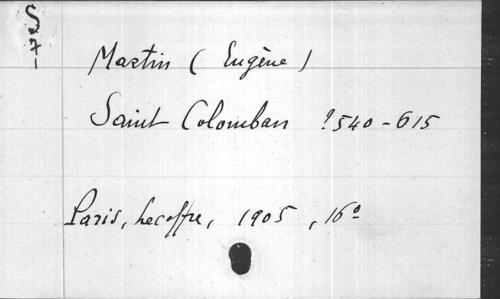 Martin (Eugène)
Saint Colomban ?540-615
Paris, Lecoffre, 1905, 16º